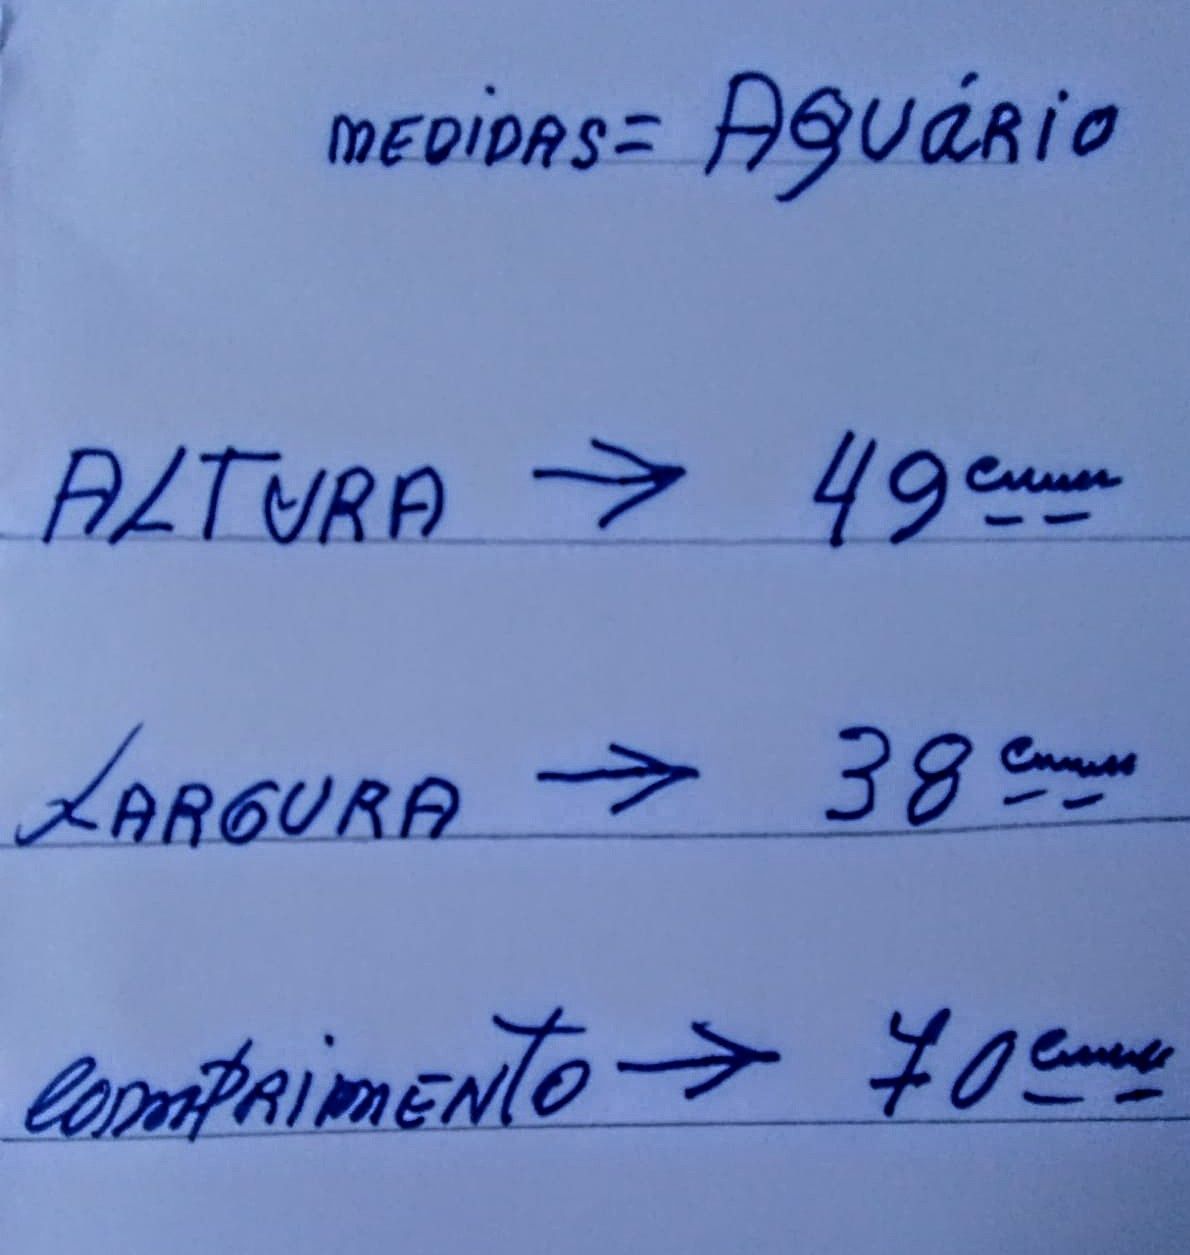 MEDIDAS = AQUÁRIO
ALTURA → 49 cm
LARGURA → 38 cm
COMPRIMENTO → 70 cm